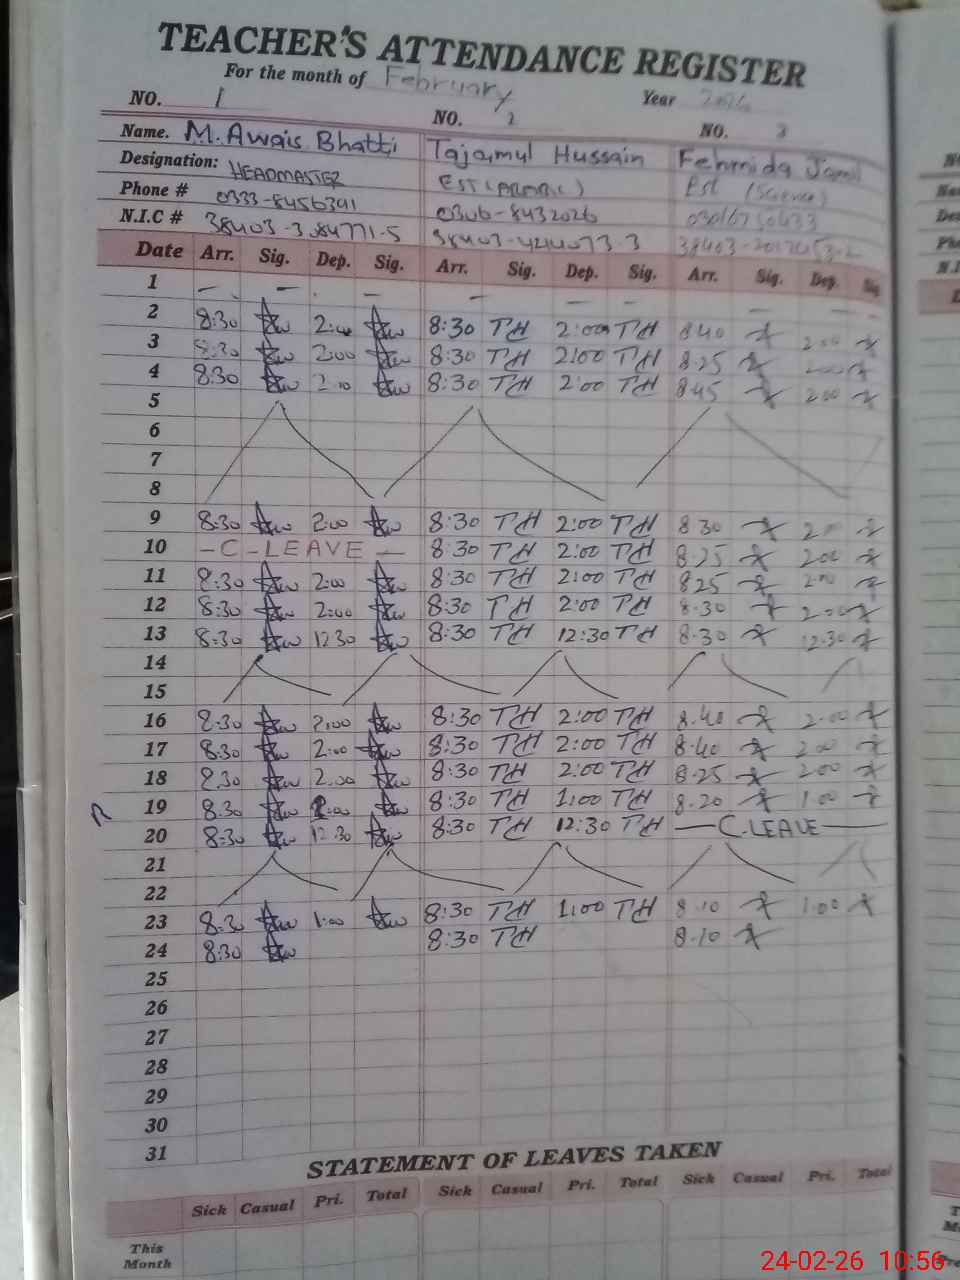 TEACHER'S ATTENDANCE REGISTER
For the month of February Year 2026
NO. 1 NO. 2 NO. 3
Name. M. Awais Bhatti Tajamul Hussain Fehmida Jamil
Designation: HEADMASTER EST (ARABIC) Est (Science)
Phone # 0333-8456341 0306-8432026
N.I.C # 38403-3084771-5
Date Arr. Sig. Dep. Sig. Arr. Sig. Dep. Sig. Arr. Sig. Dep. Sig
1 – – – – – – – – –
2 8:30 2:00 8:30 TH 2:00 TH 8:40 2:00
3 8:30 2:00 8:30 TH 2:00 TH 8.25 2:00
4 8:30 2:00 8:30 TH 2:00 TH 8:45 2:00
5
6
7
8
9 8:30 2:00 8:30 TH 2:00 TH 8 30 2:00
10 – C - LEAVE – 8:30 TH 2:00 TH 8.25 2:00
11 8:30 2:00 8:30 TH 2:00 TH 8 25 2:00
12 8:30 2:00 8:30 TH 2:00 TH 8.30 2:00
13 8:30 12 30 8:30 TH 12:30 TH 8.30 12.30
14
15
16 8:30 2:00 8:30 TH 2:00 TH 8.40 2.00
17 8:30 2:00 8:30 TH 2:00 TH 8.40 2:00
18 8:30 2:00 8:30 TH 2:00 TH 8.25 2:00
19 8:30 1:00 8:30 TH 1:00 TH 8.20 1 00
20 8:30 12:30 8:30 TH 12:30 TH — C.LEAVE —
21
22
23 8:30 1:00 8:30 TH 1:00 TH 8.10 1:00
24 8:30 8:30 TH 8.10
25
26
27
28
29
30
31
STATEMENT OF LEAVES TAKEN
Sick Casual Pri. Total Sick Casual Pri. Total Sick Casual Pri. Total
This Month
24-02-26 10:56